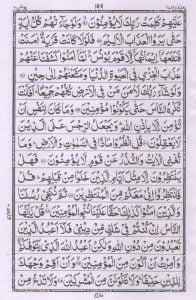 ۱۹۹
عَلَيْهِمْ كَلِمَتُ رَبِّكَ لَا يُؤْمِنُوْنَ وَلَوْ جَآءَتْهُمْ كُلُّ اٰيَةٍ
حَتّٰى يَرَوُا الْعَذَابَ الْاَلِيْمَ فَلَوْلَا كَانَتْ قَرْيَةٌ اٰمَنَتْ
فَنَفَعَهَاۤ اِيْمَانُهَاۤ اِلَّا قَوْمَ يُوْنُسَ لَمَّاۤ اٰمَنُوْا كَشَفْنَا عَنْهُمْ
عَذَابَ الْخِزْىِ فِى الْحَيٰوةِ الدُّنْيَا وَمَتَّعْنٰهُمْ اِلٰى حِيْنٍ
وَلَوْ شَآءَ رَبُّكَ لَاٰمَنَ مَنْ فِى الْاَرْضِ كُلُّهُمْ جَمِيْعًا اَفَاَنْتَ تُكْرِهُ
النَّاسَ حَتّٰى يَكُوْنُوْا مُؤْمِنِيْنَ وَمَا كَانَ لِنَفْسٍ اَنْ
تُؤْمِنَ اِلَّا بِاِذْنِ اللّٰهِ وَيَجْعَلُ الرِّجْسَ عَلَى الَّذِيْنَ
لَا يَعْقِلُوْنَ قُلِ انْظُرُوْا مَاذَا فِى السَّمٰوٰتِ وَالْاَرْضِ وَمَا
تُغْنِى الْاٰيٰتُ وَالنُّذُرُ عَنْ قَوْمٍ لَّا يُؤْمِنُوْنَ فَهَلْ
يَنْتَظِرُوْنَ اِلَّا مِثْلَ اَيَّامِ الَّذِيْنَ خَلَوْا مِنْ قَبْلِهِمْ قُلْ
فَانْتَظِرُوْۤا اِنِّىْ مَعَكُمْ مِّنَ الْمُنْتَظِرِيْنَ ثُمَّ نُنَجِّىْ رُسُلَنَا
وَالَّذِيْنَ اٰمَنُوْا كَذٰلِكَ حَقًّا عَلَيْنَا نُنْجِ الْمُؤْمِنِيْنَ قُلْ يٰۤاَيُّهَا
النَّاسُ اِنْ كُنْتُمْ فِىْ شَكٍّ مِّنْ دِيْنِىْ فَلَاۤ اَعْبُدُ الَّذِيْنَ
تَعْبُدُوْنَ مِنْ دُوْنِ اللّٰهِ وَلٰكِنْ اَعْبُدُ اللّٰهَ الَّذِىْ يَتَوَفّٰىكُمْ
وَاُمِرْتُ اَنْ اَكُوْنَ مِنَ الْمُؤْمِنِيْنَ وَاَنْ اَقِمْ وَجْهَكَ
لِلدِّيْنِ حَنِيْفًا وَلَا تَكُوْنَنَّ مِنَ الْمُشْرِكِيْنَ وَلَا تَدْعُ مِنْ